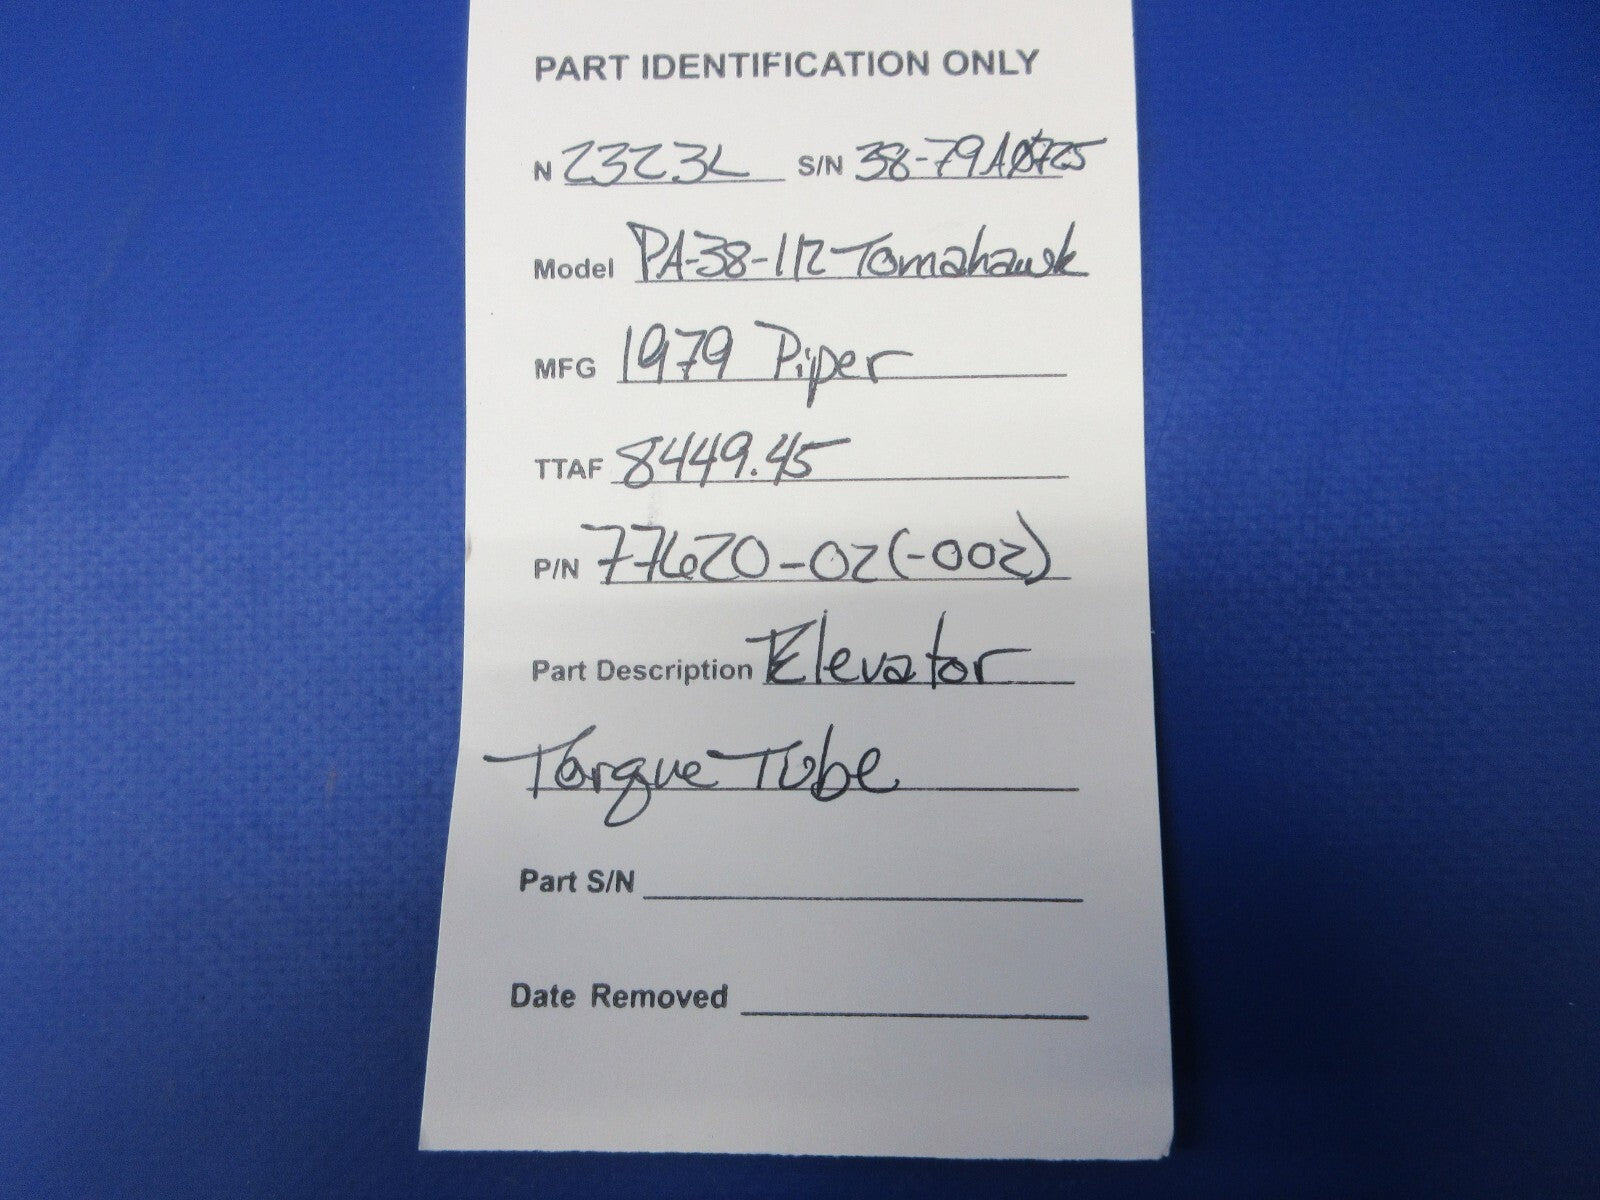 PART IDENTIFICATION ONLY
N 2323L S/N 38-79A0725
Model PA-38-112 Tomahawk
MFG 1979 Piper
TTAF 8449.45
P/N 77620-02(-002)
Part Description Elevator
Torque Tube
Part S/N
Date Removed